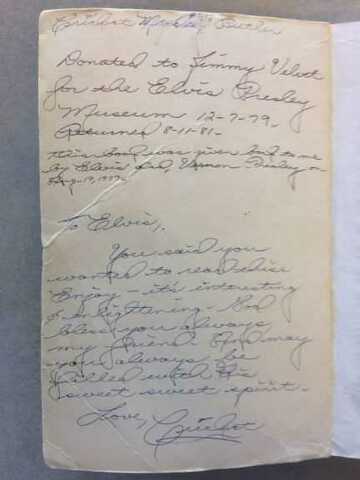 Cricket Butler
Donated to Jimmy Velvet
for the Elvis Presley
Museum 12-7-79.
Returned 8-11-81-
this book was given back to me
by Elvis' dad, Vernon Presley on
To Elvis,
You said you
wanted to read this.
Enjoy - it's interesting
& enlightening. God
bless you always
my friend. And may
you always be
filled with His
sweet sweet spirit.
Love, Cricket